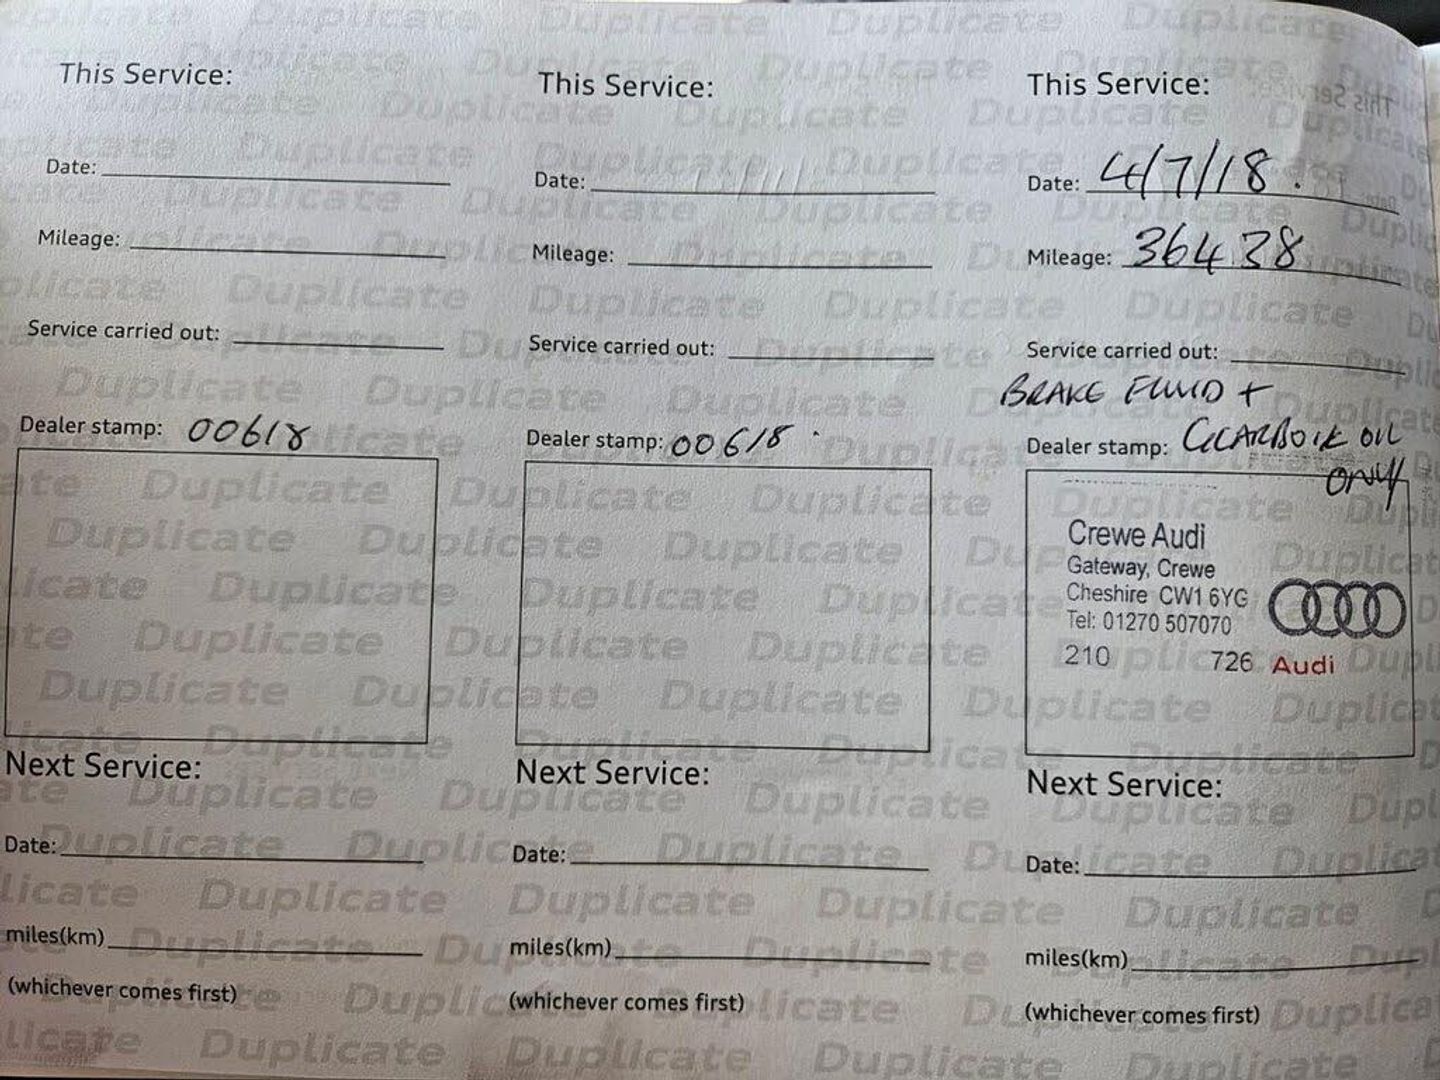 This Service:
Date:
Mileage:
Service carried out:
Dealer stamp: 00618
Next Service:
Date:
miles(km)
(whichever comes first)
This Service:
Date:
Mileage:
Service carried out:
Dealer stamp: 00618
Next Service:
Date:
miles(km)
(whichever comes first)
This Service:
Date: 4/7/18.
Mileage: 36438
Service carried out:
BRAKE FLUID +
Dealer stamp: GEARBOX OIL
ONLY
Crewe Audi
Gateway, Crewe
Cheshire CW1 6YG
Tel: 01270 507070
210 726 Audi
Next Service:
Date:
miles(km)
(whichever comes first)
Duplicate